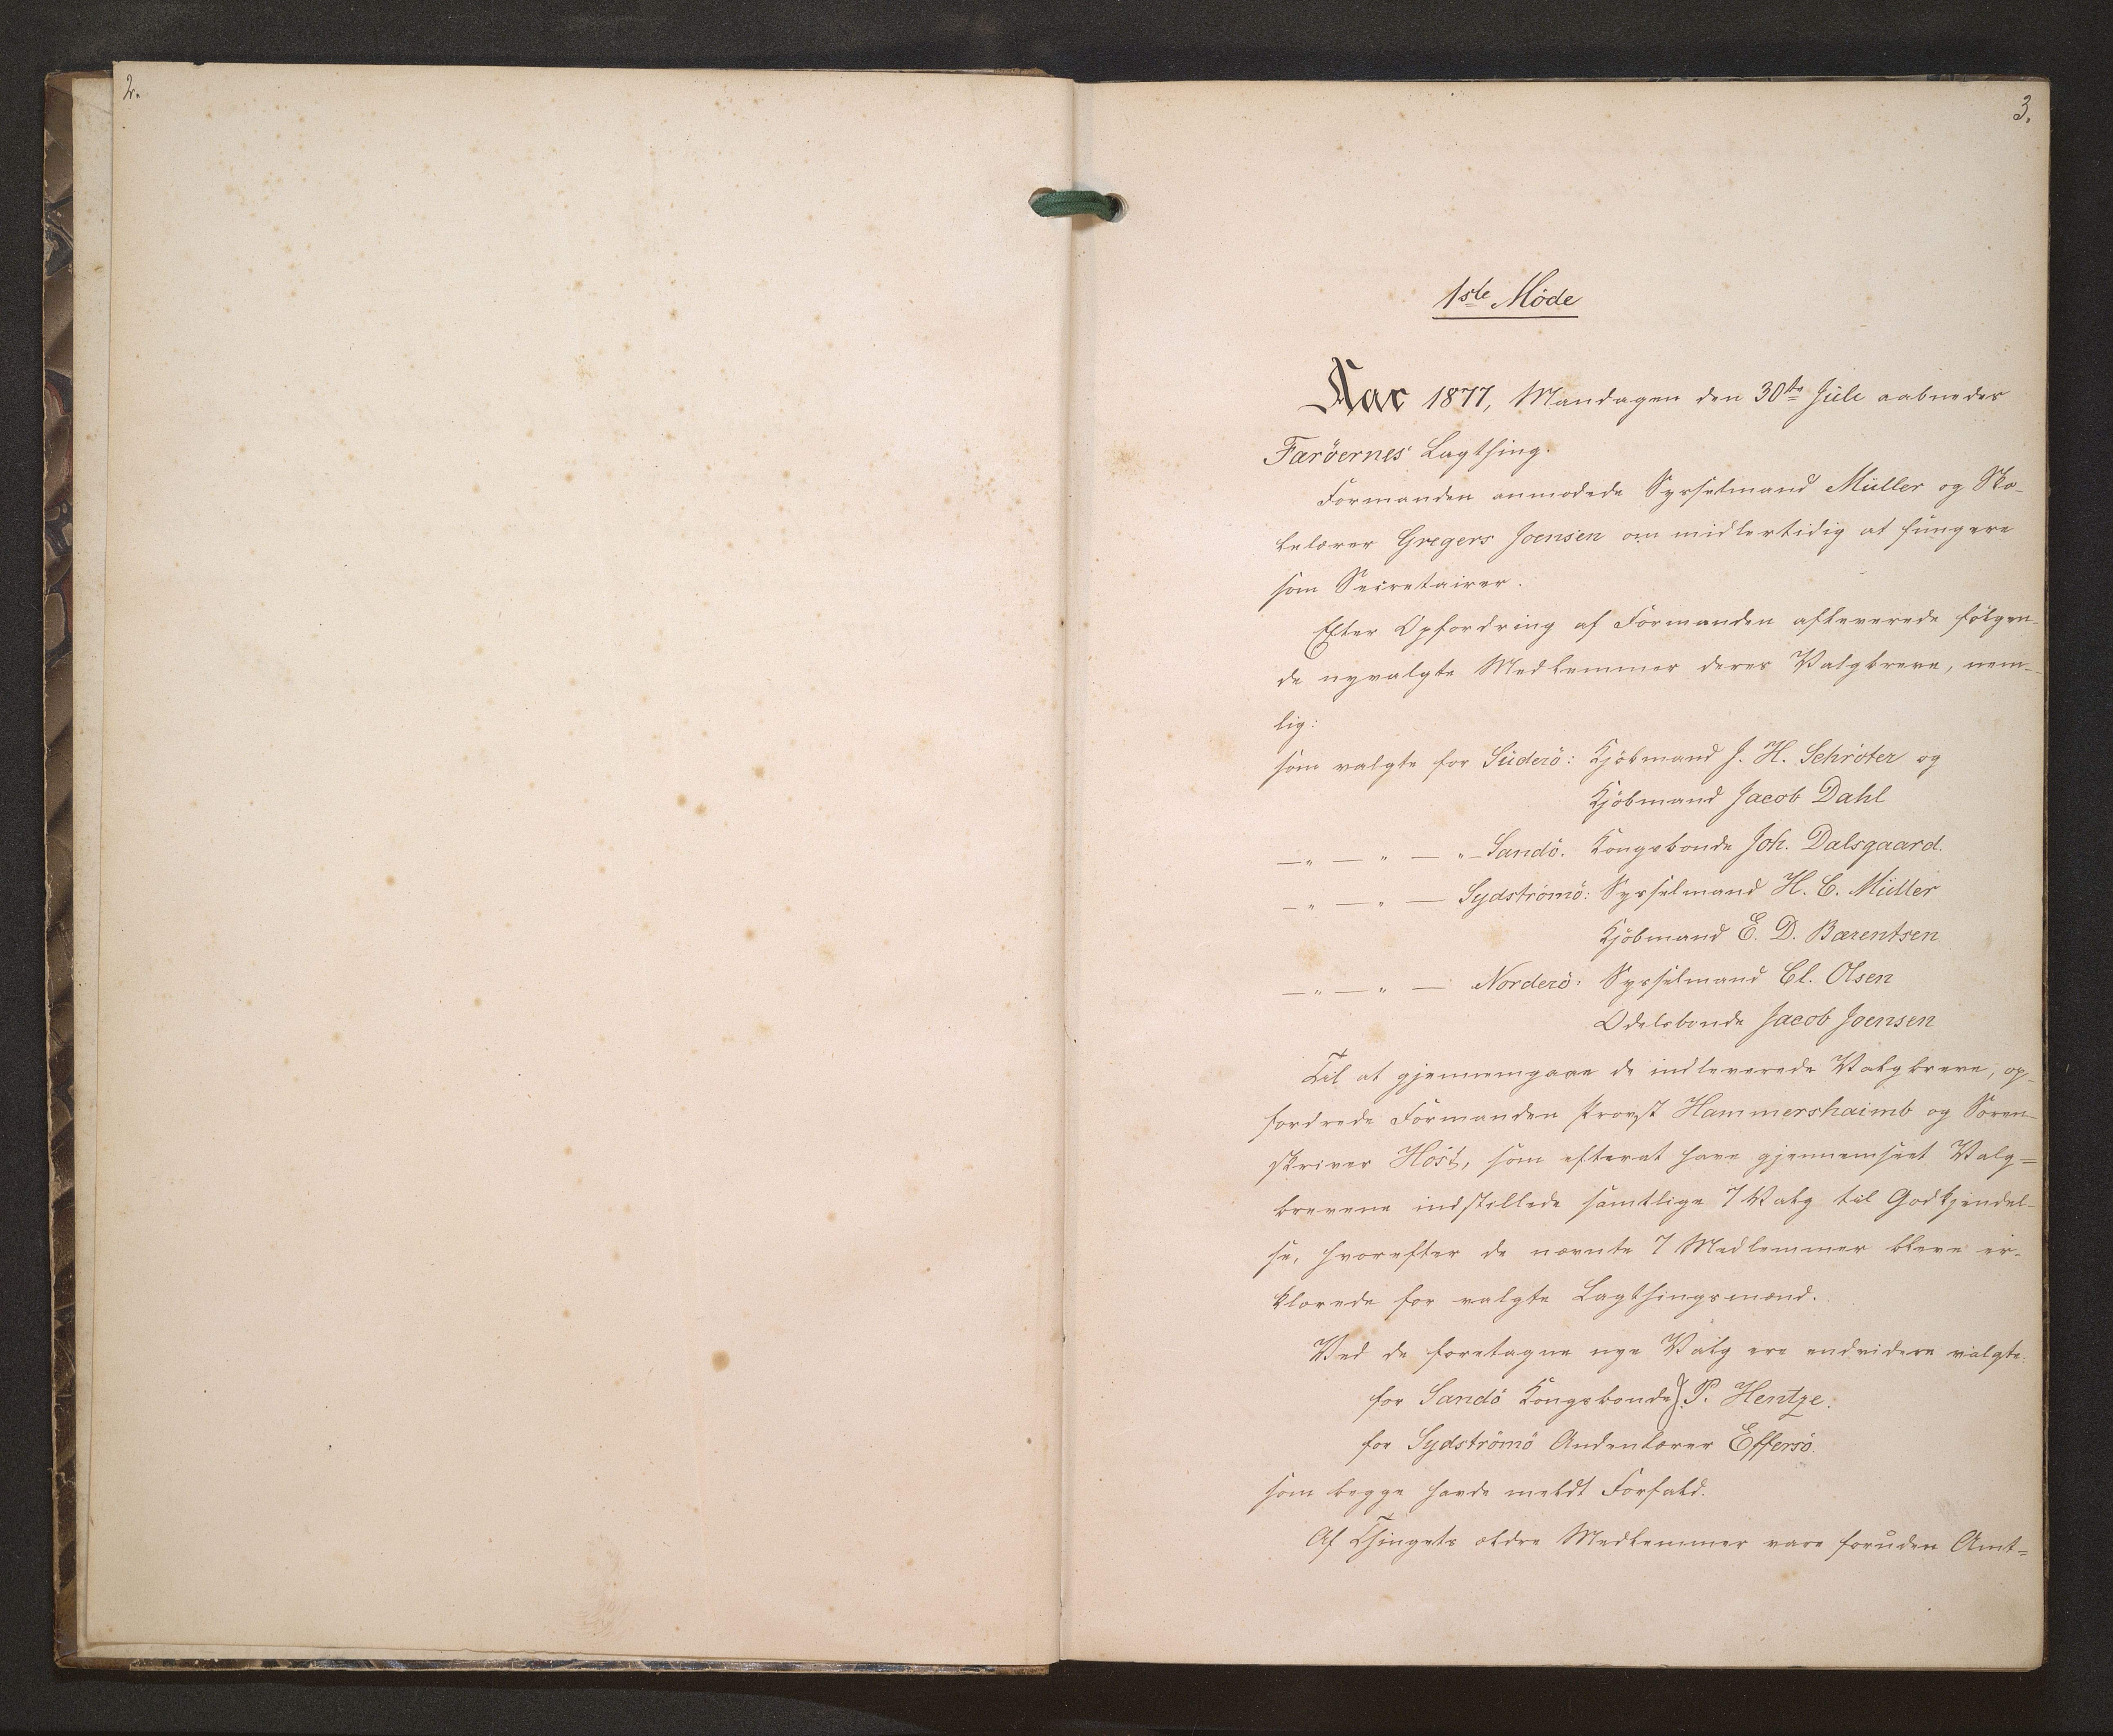 2.
3.
1ste Möde
Aar 1877, Mandagen den 30te Juli aabnedes
Færöernes Lagthing.
Formanden anmodede Sysselmand Müller og Sko-
lelærer Gregers Joensen om midlertidig at fungere
som Secretairer.
Efter Opfordring af Formanden afleverede følgen-
de nyvalgte Medlemmer deres Valgbreve, nem-
lig:
som valgte for Suderö: Kjöbmand J. H. Schröter og
Kjöbmand Jacob Dahl
— " — " — " — Sandö. Kongsbonde Joh. Dalsgaard.
— " — " — Sydströmö: Sysselmand H. C. Müller
Kjöbmand E. D. Bærentsen
— " — " — Norderö: Sysselmand Cl. Olsen
Odelsbonde Jacob Joensen
Til at gjennemgaae de indleverede Valgbreve, op-
fordrede Formanden Provst Hammershaimb og Soren-
skriver Höst, som efterat have gjennemseet Valg=
brevene indstillede samtlige 7 Valg til Godkjendel-
se, hvorefter de nævnte 7 Medlemmer bleve er-
klærede for valgte Lagthingsmænd.
Ved de foretagne nye Valg ere endvidere valgte:
for Sandö Kongsbonde P. Hentze.
for Sydströmö Andenlærer Effersö.
som begge havde meldt Forfald.
Af Thingets ældre Medlemmer vare foruden Amt=